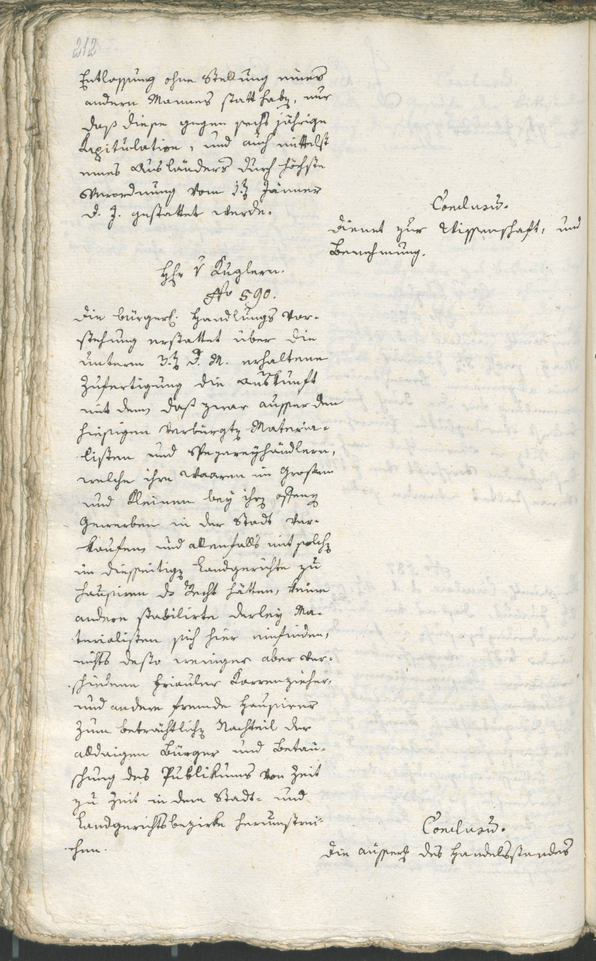 212
Entlassung ohne Stellung eines
andern Mannes statt habe, nur
daß diese gegen sechsjährige
Kapitulation, und auch mittelst
eines Ausländers durch höchste
Verordnung vom Jänner
d. J. gestattet werde.
Conclusum.
Dienet zur Wissenschaft, und
Benehmung.
Hhr v Kuglern.
Nro 590.
Die bürgerl. Handlungs Vor-
stehung erstattet über die
unterm d. M. erhaltene
Zufertigung die Auskunft
mit dem, daß zwar ausser den
hiesigen verbürgten Materia-
listen und Spezereyhändlern,
welche ihre Waaren im Großen
und Kleinen bey ihren offenen
Gewerben in der Stadt ver-
kaufen, und allenfalls mit solchen
im diesseitigen Landgerichte zu
hausiren das Recht hätten, keine
andere stabilirte derley Ma-
terialisten sich hier einfinden,
nichts desto weniger aber ver-
schiedene Friauler Karrenzieher,
und andere fremde Hausirer
zum beträchtlichen Nachteil der
alldaigen Bürger und Betäu-
schung des Publikums von Zeit
zu Zeit in dem Stadt- und
Landgerichtsbezirke herumstrei-
chen.
Conclusum.
Die des Handelsstandes